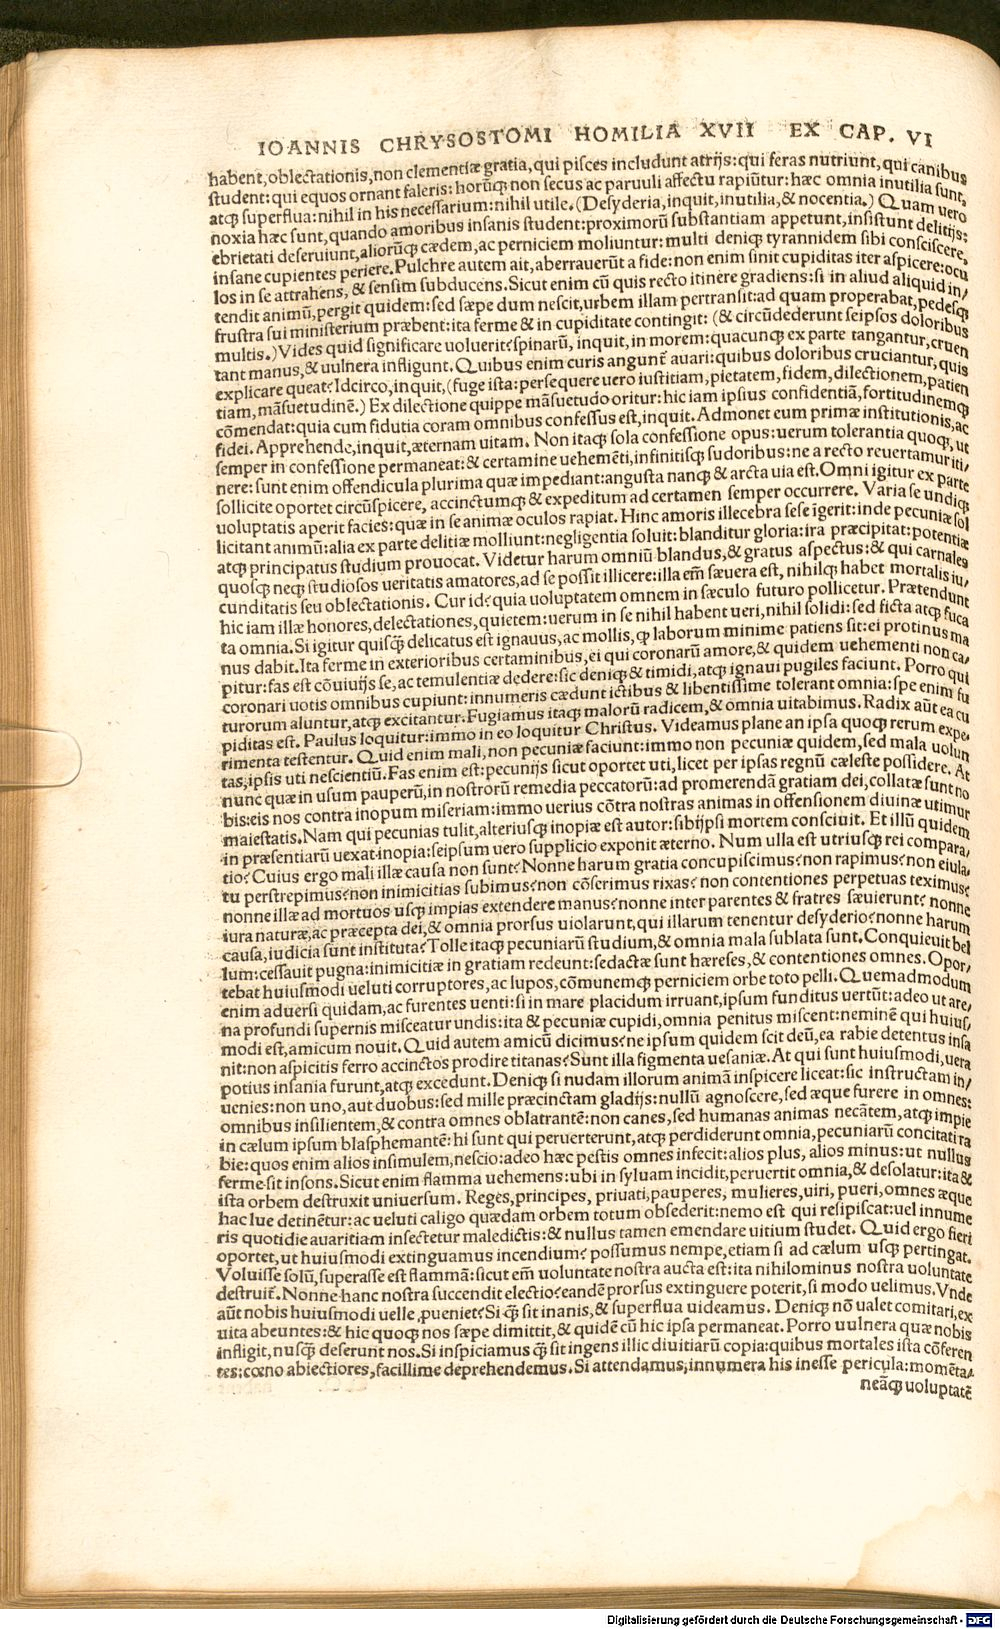 IOANNIS CHRYSOSTOMI HOMILIA XVII EX CAP. VI
habent,oblectationis,non clementiæ gratia,qui pisces includunt atrijs:qui feras nutriunt,qui canibus
student:qui equos ornant faleris:horūq; non secus ac paruuli affectu rapiūtur:hæc omnia inutilia sunt,
atq; superflua:nihil in his necessarium:nihil utile.(Desyderia,inquit,inutilia,& nocentia.) Quam uero
noxia hæc sunt,quando amoribus insanis student:proximorū substantiam appetunt,insistunt delitijs:
ebrietati deseruiunt,aliorūq; cædem,ac perniciem moliuntur:multi deniq; tyrannidem sibi consciscere,
insane cupientes periere.Pulchre autem ait,aberrauerūt a fide:non enim sinit cupiditas iter aspicere:ocu
los in se attrahens,& sensim subducens.Sicut enim cū quis recto itinere gradiens:si in aliud aliquid in/
tendit animū,pergit quidem:sed sæpe dum nescit,urbem illam pertransit:ad quam properabat,pedesq;
frustra sui ministerium præbent:ita ferme & in cupiditate contingit: (& circūdederunt seipsos doloribus
multis.)Vides quid significare uoluerit?spinarū, inquit,in morem:quacunq; ex parte tangantur,cruen
tant manus,& uulnera infligunt.Quibus enim curis angunt̄ auari:quibus doloribus cruciantur,quis
explicare queat?Idcirco,inquit,(fuge ista:persequere uero iustitiam,pietatem,fidem,dilectionem,patien
tiam,māsuetudinē.) Ex dilectione quippe māsuetudo oritur:hic iam ipsius confidentiā,fortitudinemq;
cōmendat:quia cum fidutia coram omnibus confessus est,inquit.Admonet eum primæ institutionis,ac
fidei.Apprehende,inquit,æternam uitam. Non itaq; sola confessione opus:uerum tolerantia quoq;,ut
semper in confessione permaneat:& certamine uehemēti,infinitisq; sudoribus:ne a recto reuertamur iti/
nere:sunt enim offendicula plurima quæ impediant:angusta nanq; & arcta uia est.Omni igitur ex parte
sollicite oportet circūspicere, accinctumq; & expeditum ad certamen semper occurrere. Varia se undiq;
uoluptatis aperit facies:quæ in se animæ oculos rapiat. Hinc amoris illecebra sese īgerit:inde pecuniæ sol
licitant animū:alia ex parte delitiæ molliunt:negligentia soluit:blanditur gloria:ira præcipitat:potentiæ
atq; principatus studium prouocat. Videtur harum omniū blandus,& gratus aspectus:& qui carnales
quosq; neq; studiosos ueritatis amatores,ad se possit illicere:illa em̄ sæuera est, nihilq; habet mortalis iu/
cunditatis seu oblectationis. Cur id?quia uoluptatem omnem in sæculo futuro pollicetur. Prætendunt
hic iam illæ honores,delectationes,quietem:uerum in se nihil habent ueri,nihil solidi:sed ficta atq; fuca
ta omnia.Si igitur quisq̄ delicatus est ignauus,ac mollis,q̄ laborum minime patiens sit:ei protinus ma
nus dabit.Ita ferme in exterioribus certaminibus,ei qui coronarū amore,& quidem uehementi non ca/
pitur:fas est cōuiuijs se,ac temulentiæ dedere:sic deniq; & timidi,atq; ignaui pugiles faciunt. Porro qui
coronari uotis omnibus cupiunt:innumeris cædunt ictibus & libentissime tolerant omnia:spe enim fu
turorum aluntur,atq; excitantur.Fugiamus itaq; malorū radicem,& omnia uitabimus. Radix aūt ea cu
piditas est. Paulus loquitur:immo in eo loquitur Christus. Videamus plane an ipsa quoq; rerum expe/
rimenta testentur. Quid enim mali,non pecuniæ faciunt:immo non pecuniæ quidem,sed mala uolun
tas,ipsis uti nescientiū.Fas enim est:pecunijs sicut oportet uti,licet per ipsas regnū cæleste possidere. At
nunc quæ in usum pauperū,in nostrorū remedia peccatorū:ad promerendā gratiam dei,collatæ sunt no
bis:eis nos contra inopum miseriam:immo uerius cōtra nostras animas in offensionem diuinæ utimur
maiestatis.Nam qui pecunias tulit,alteriusq; inopiæ est autor:sibijpsi mortem consciuit. Et illū quidem
in præsentiarū uexat inopia:seipsum uero supplicio exponit æterno. Num ulla est utriusq; rei compara/
tio?Cuius ergo mali illæ causa non sunt?Nonne harum gratia concupiscimus?non rapimus?non eiula/
tu perstrepimus?non inimicitias subimus?non cōserimus rixas?non contentiones perpetuas teximus?
nonne illæ ad mortuos usq; impias extendere manus?nonne inter parentes & fratres sæuierunt? nonne
iura naturæ,ac præcepta dei,& omnia prorsus uiolarunt,qui illarum tenentur desyderio?nonne harum
causa,iudicia sūnt instituta?Tolle itaq; pecuniarū studium,& omnia mala sublata sunt.Conquieuit bel
lum:cessauit pugna:inimicitiæ in gratiam redeunt:sedactæ sunt hæreses,& contentiones omnes. Opor/
tebat huiusmodi ueluti corruptores,ac lupos,cōmunemq; perniciem orbe toto pelli.Quemadmodum
enim aduersi quidam,ac furentes uenti:si in mare placidum irruant,ipsum funditus uertūt:adeo ut are/
na profundi supernis misceatur undis:ita & pecuniæ cupidi,omnia penitus miscent:neminē qui huius/
modi est,amicum nouit.Quid autem amicū dicimus?ne ipsum quidem scit deū,ea rabie detentus insa
nit:non aspicitis ferro accinctos prodire titanas?Sunt illa figmenta uesaniæ.At qui sunt huiusmodi,uera
potius insania furunt,atq; excedunt.Deniq; si nudam illorum animā inspicere liceat:sic instructam in/
uenies:non uno,aut duobus:sed mille præcinctam gladijs:nullū agnoscere,sed æque furere in omnes:
omnibus insilientem,& contra omnes oblatrantē:non canes,sed humanas animas necātem,atq; impie
in cælum ipsum blasphemantē:hi sunt qui peruerterunt,atq; perdiderunt omnia,pecuniarū concitati ra
bie:quos enim alios insimulem,nescio:adeo hæc pestis omnes infecit:alios plus, alios minus:ut nullus
ferme sit insons.Sicut enim flamma uehemens:ubi in syluam incidit,peruertit omnia,& desolatur:ita &
ista orbem destruxit uniuersum. Reges,principes, priuati,pauperes, mulieres,uiri, pueri,omnes æque
hac lue detinētur:ac ueluti caligo quædam orbem totum obsederit:nemo est qui resipiscat:uel innume
ris quotidie auaritiam insectetur maledictis:& nullus tamen emendare uitium studet. Quid ergo fieri
oportet,ut huiusmodi extinguamus incendium? possumus nempe,etiam si ad cælum usq; pertingat.
Voluisse solū,superasse est flammā:sicut em̄ uoluntate nostra aucta est:ita nihilominus nostra uoluntate
destruit̄.Nonne hanc nostra succendit electio?eandē prorsus extinguere poterit,si modo uelimus.Vnde
aūt nobis huiusmodi uelle ,pueniet?Si q̄ sit inanis,& superflua uideamus. Deniq; nō ualet comitari,ex
uita abeuntes:& hic quoq; nos sæpe dimittit,& quidē cū hic ipsa permaneat. Porro uulnera quæ nobis
infligit,nusq̄ deserunt nos.Si inspiciamus q̄ sit ingens illic diuitiarū copia:quibus mortales ista cōferen
tes:cœno abiectiores,facillime deprehendemus.Si attendamus,innumera his inesse pericula:momēta/
neāq; uoluptatē
Digitalisierung gefördert durch die Deutsche Forschungsgemeinschaft - DFG